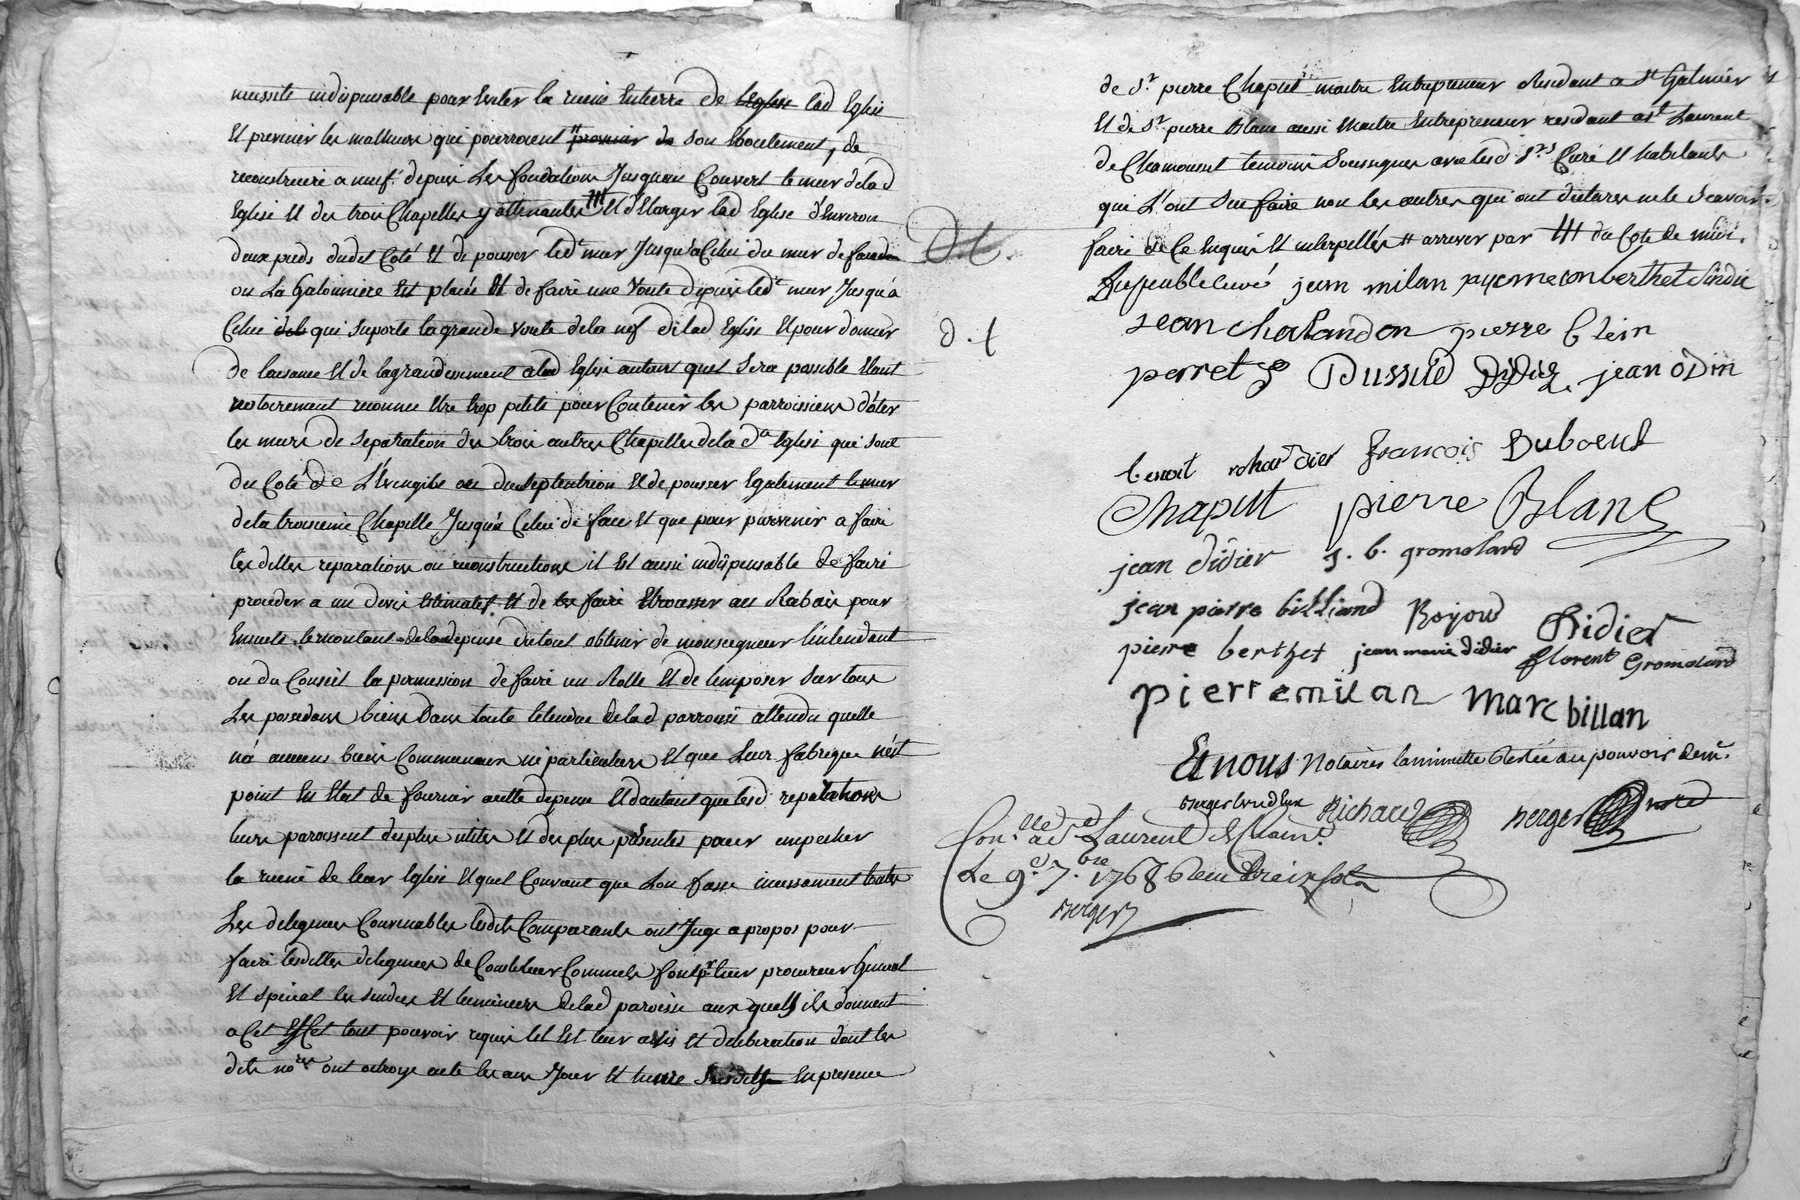 necessité indispensable pour Eviter la ruine Entierre de lad Eglise
Et prevenir les malheurs qui pourroient prevenir de son Ecroulement, de
reconstruire a neuf depuis Les fondations Jusquau Couvert le mur delad
Eglise Et des trois Chapelles y attenantes Et d'Elargir lad Eglise d'Environ
deux pieds dudit Coté Et de pousser led.t mur Jusqu'a Celui du mur de face
ou La Galonniere Est placée Et de faire une Voute depuis led.t mur Jusqu'a
Celui qui suporte la grande voute dela nef delad Eglise Et pour donner
de laisance Et de lagrandissement alad Eglise autant quil sera possible Etant
notoirement reconnue Etre trop petite pour Contenir les parroissiens d'oter
les murs de separation des trois autres Chapelles dela d.e Eglise qui sont
du Coté De L'Evangile ou du septentrion Et de pousser Egalement le mur
dela troisieme Chapelle Jusqua Celui de face Et que pour parvenir a faire
lesdittes reparations ou reconstructions il Est aussi indispensable de faire
proceder a un devis Estimatif Et de les faire au Rabais pour
Ensuite le montant dela depense du tout obtenir de monseigneur lintendant
ou du Conseil la permission de faire un Rolle Et de lemposer sur tous
Les possedans biens Dans toute letendue delad parroisse attendu quelle
na aucuns biens Communaux ni particuliers Et que leur fabrique nest
point En Etat de fournir a cette depense Et d'autant que lesd reparations
leur paroissent des plus utiles Et des plus présentes pour empecher
la ruine de leur Eglise Et quil Convient que Lon fasse incessament toutes
Les diligences Convenables lesdits Comparants ont Jugé a propos pour
faire lesdittes diligences de Constituer Comme ils font p.r leur procureur General
Et special les sindics Et luminiers delad paroisse aux quels ils donnent
a Cet Effet tout pouvoir requis tel Est leur avis Et deliberation dont les
dits no.res ont octroyé acte les an Jour Et heure susdits En presence
de S.r pierre Chaput maitre Entrepreneur Residant a S.t Galmier
Et de S.r pierre Blanc aussi Maitre Entrepreneur residant a S.t Laurent
de Chamousset temoins Soussignés avec lesd S.rs Curé Et habitants
qui L'ont Sçu faire non les autres qui ont declarés ne le Scavoir
faire de Ce Enquis Et interpellés
Dupeuble curé jean milan berthet Sindic
jean chalandon pierre
perret Dussud Didier jean odin
benoit François Duboeuf
Chaput pierre Blanc
jean didier j. b. gromolard
jean pierre billiand Rojou Didier
pierre berthet jean marie didier florent Gromolard
pierre milan Marc billan
Et nous Notaires la minutte Restée au pouvoir de m.e
Richard Berger
Con.llé a S.t Laurent de Cham.t
Le 9.e 7.bre 1768
Berger